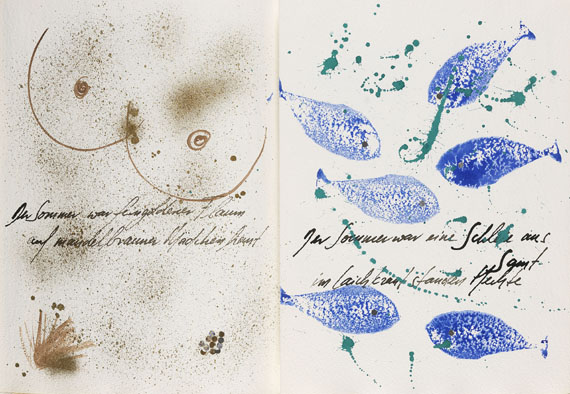 Der Sommer war feingoldener Flaum
auf mandelbrauner Mädchen haut
Der Sommer war eine Schleie aus
Samt
im Laichkraut standen Hechte